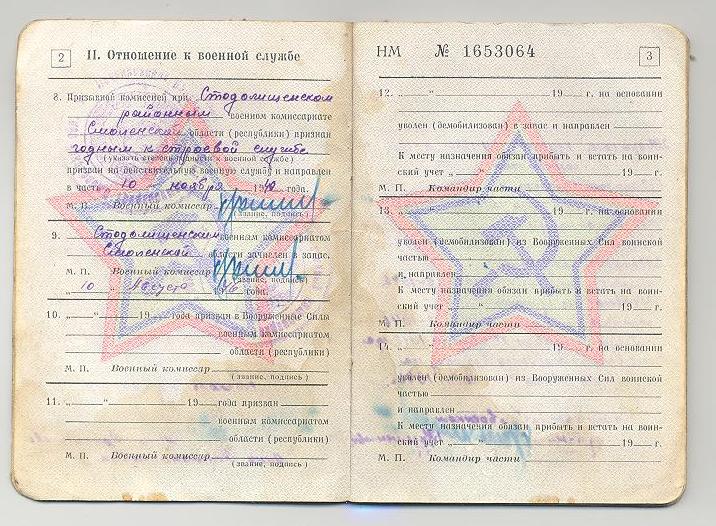 2 II. Отношение к военной службе
8. Призывной комиссией при Стодолищенском
районным военном комиссариате
Смоленской области (республики) признан
годным к строевой службе
(указать степень годности к военной службе)
призван на действительную военную службу и направлен
в часть „10 ноября 1940 года.
М. П. Военный комиссар
(звание, подпись)
9. Стодолищенским военным комиссариатом
Смоленской области зачислен в запас.
М. П. Военный комиссар
(звание, подпись)
10 Августа 19 года.
10. „ “ 19 года призван в Вооруженные Силы
военным комиссариатом
области (республики)
М. П. Военный комиссар
(звание, подпись)
11. „ “ 19 года призван
военным комиссариатом
области (республики)
М. П. Военный комиссар
(звание, подпись)
НМ № 1653064 3
12. „ “ 19 г. на основании
уволен (демобилизован) в запас и направлен
К месту назначения обязан прибыть и встать на воин-
ский учет „ “ 19 г.
М. П. Командир части
13. „ “ 19 г. на основании
уволен (демобилизован) из Вооруженных Сил воинской
частью
и направлен
К месту назначения обязан прибыть и встать на воин-
ский учет „ “ 19 г.
М. П. Командир части
14. „ “ 19 г. на основании
уволен (демобилизован) из Вооруженных Сил воинской
частью
и направлен
К месту назначения обязан прибыть и встать на воин-
ский учет „ “ 19 г.
М. П. Командир части